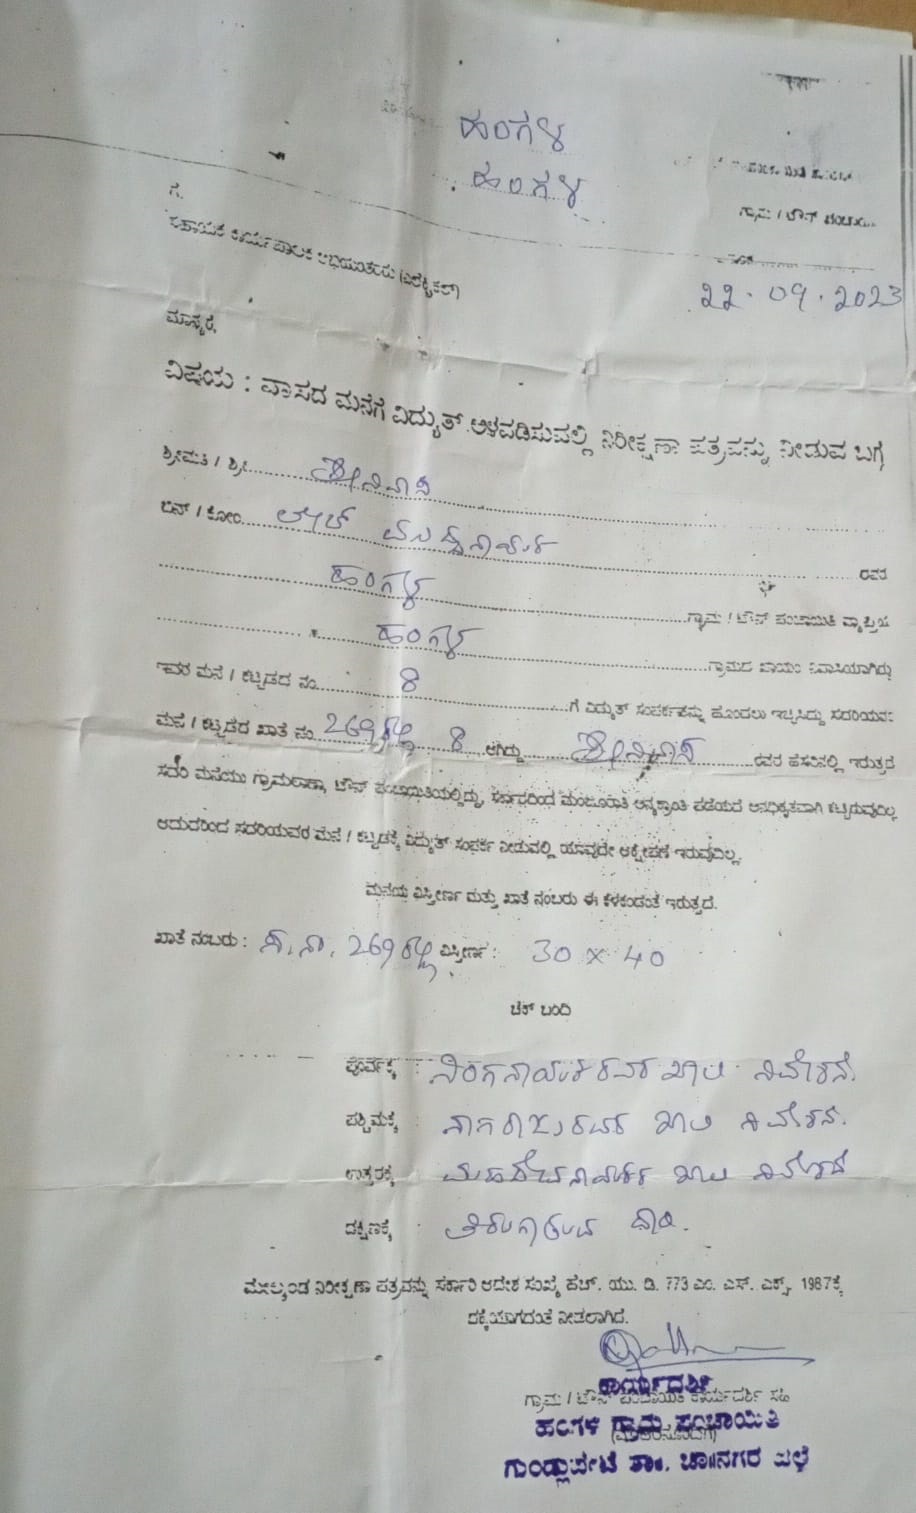 ಹಂಗಳ
ಹಂಗಳ
ಗ್ರಾಮ / ಟೌನ್ ಪಂಚಾಯಿ
22.09.2023
ಗೆ,
ಸಹಾಯಕ ಕಾರ್ಯಪಾಲಕ ಅಭಿಯಂತರರು (ಎಲೆಕ್ಟ್ರಿಕಲ್)
ಮಾನ್ಯರೆ,
ವಿಷಯ : ವಾಸದ ಮನೆಗೆ ವಿದ್ಯುತ್ ಅಳವಡಿಸುವಲ್ಲಿ ನಿರೀಕ್ಷಣಾ ಪತ್ರವನ್ನು ನೀಡುವ ಬಗ್ಗೆ
ಶ್ರೀಮತಿ / ಶ್ರೀ ಶ್ರೀನಿವಾಸ
ಬಿನ್ / ಕೋಂ ಲೇಟ್ ರವರ
ಹಂಗಳ ಗ್ರಾಮ / ಟೌನ್ ಪಂಚಾಯಿತಿ ವ್ಯಾಪ್ತಿಯ
ಹಂಗಳ ಗ್ರಾಮದ ಖಾಯಂ ನಿವಾಸಿಯಾಗಿದ್ದು
ಇವರ ಮನೆ / ಕಟ್ಟಡದ ನಂ. 8 ಗೆ ವಿದ್ಯುತ್ ಸಂಪರ್ಕವನ್ನು ಹೊಂದಲು ಇಚ್ಛಿಸಿದ್ದು ಸದರಿಯವರ
ಮನೆ / ಕಟ್ಟಡದ ಖಾತೆ ನಂ. 269 8 ಆಗಿದ್ದು ಶ್ರೀನಿವಾಸ ರವರ ಹೆಸರಿನಲ್ಲಿ ಇರುತ್ತದೆ
ಸದರಿ ಮನೆಯು ಗ್ರಾಮಠಾಣಾ, ಟೌನ್ ಪಂಚಾಯಿತಿಯಲ್ಲಿದ್ದು, ಸರ್ಕಾರದಿಂದ ಮಂಜೂರಾತಿ ಅನ್ಯಕ್ರಾಂತಿ ಪಡೆಯದೆ ಅನಧಿಕೃತವಾಗಿ ಕಟ್ಟಿರುವುದಿಲ್ಲ
ಆದುದರಿಂದ ಸದರಿಯವರ ಮನೆ / ಕಟ್ಟಡಕ್ಕೆ ವಿದ್ಯುತ್ ಸಂಪರ್ಕ ನೀಡುವಲ್ಲಿ ಯಾವುದೇ ಆಕ್ಷೇಪಣೆ ಇರುವುದಿಲ್ಲ.
ಮನೆಯ ವಿಸ್ತೀರ್ಣ ಮತ್ತು ಖಾತೆ ನಂಬರು ಈ ಕೆಳಕಂಡಂತೆ ಇರುತ್ತದೆ.
ಖಾತೆ ನಂಬರು : 269 ವಿಸ್ತೀರ್ಣ : 30 × 40
ಚೆಕ್ ಬಂದಿ
ಪೂರ್ವಕ್ಕೆ : ನಿಂಗನಾಯಕರವರ ಖಾಲಿ ನಿವೇಶನ.
ಪಶ್ಚಿಮಕ್ಕೆ : ನಾಗರಾಜುರವರ ಖಾಲಿ ನಿವೇಶನ.
ಉತ್ತರಕ್ಕೆ ಖಾಲಿ ನಿವೇಶನ
ದಕ್ಷಿಣಕ್ಕೆ : ತಿರುಗಾಡುವ ದಾರಿ.
ಮೇಲ್ಕಂಡ ನಿರೀಕ್ಷಣಾ ಪತ್ರವನ್ನು ಸರ್ಕಾರಿ ಆದೇಶ ಸಂಖ್ಯೆ ಹೆಚ್. ಯು. ಡಿ. 773 ಎಂ. ಎನ್. ಎಕ್ಸ್. 1987ಕ್ಕೆ
ದಕ್ಕೆಯಾಗದಂತೆ ನೀಡಲಾಗಿದೆ.
ಕಾರ್ಯದರ್ಶಿ
ಗ್ರಾಮ / ಟೌನ್ ಪಂಚಾಯಿತಿ ಕಾರ್ಯದರ್ಶಿ ಸಹಿ
ಹಂಗಳ ಗ್ರಾಮ ಪಂಚಾಯಿತಿ
(ಮೊಹರಿನೊಂದಿಗೆ)
ಗುಂಡ್ಲುಪೇಟೆ ತಾ. ಚಾ||ನಗರ ಜಿಲ್ಲೆ